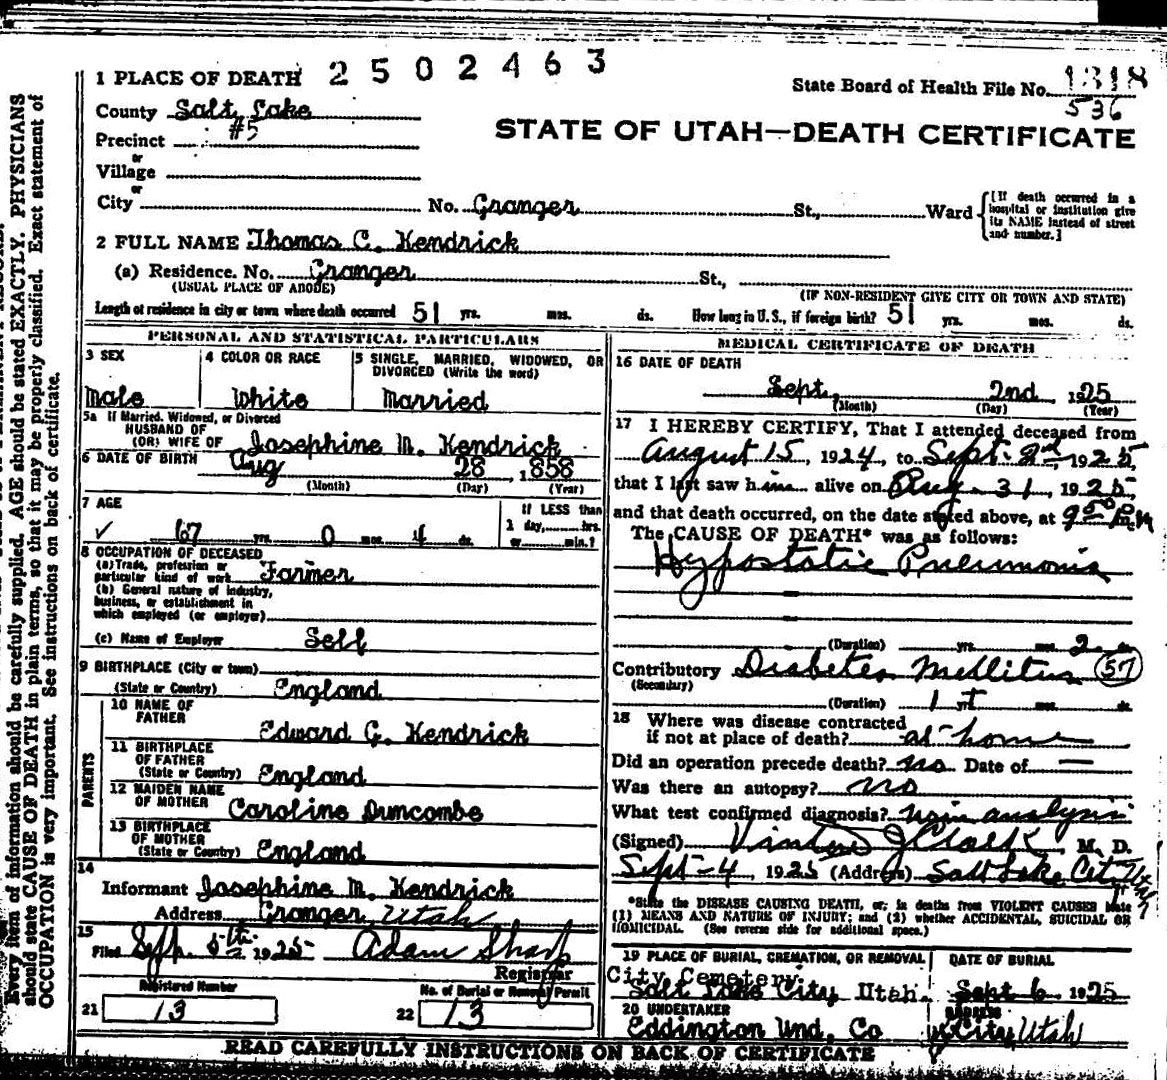 2502463
1 PLACE OF DEATH
State Board of Health File No. 1318
536
County Salt Lake
Precinct #5
STATE OF UTAH—DEATH CERTIFICATE
or
Village
or
City No. Granger St., Ward [If death occurred in a hospital or institution give its NAME instead of street and number.]
2 FULL NAME Thomas C. Kendrick
(a) Residence. No. Granger St.,
(USUAL PLACE OF ABODE) (IF NON-RESIDENT GIVE CITY OR TOWN AND STATE)
Length of residence in city or town where death occurred 51 yrs. mos. ds. How long in U. S., if foreign birth? 51 yrs. mos. ds.
PERSONAL AND STATISTICAL PARTICULARS
3 SEX
Male
4 COLOR OR RACE
White
5 SINGLE, MARRIED, WIDOWED, OR DIVORCED (Write the word)
Married
5a If Married, Widowed, or Divorced
HUSBAND OF
(OR) WIFE OF Josephine M. Kendrick
6 DATE OF BIRTH Aug 28 1858
(Month) (Day) (Year)
7 AGE
67 yrs. 0 mos. 4 ds.
If LESS than
1 day, hrs.
or min.?
8 OCCUPATION OF DECEASED
(a) Trade, profession or
particular kind of work Farmer
(b) General nature of industry,
business, or establishment in
which employed (or employer)
(c) Name of Employer Self
9 BIRTHPLACE (City or town)
(State or Country) England
PARENTS
10 NAME OF
FATHER Edward G. Kendrick
11 BIRTHPLACE
OF FATHER
(State or Country) England
12 MAIDEN NAME
OF MOTHER Caroline Duncombe
13 BIRTHPLACE
OF MOTHER
(State or Country) England
14
Informant Josephine M. Kendrick
Address Granger Utah
15
Filed Sept. 5th 1925 Adam Sharp
Registrar
Registered Number
21 13
No. of Burial or Removal Permit
22 13
MEDICAL CERTIFICATE OF DEATH
16 DATE OF DEATH
Sept. 2nd 1925
(Month) (Day) (Year)
17 I HEREBY CERTIFY, That I attended deceased from
August 15, 1924, to Sept. 2nd, 1925,
that I last saw him alive on Aug. 31, 1925,
and that death occurred, on the date stated above, at 9 50 P.m
The CAUSE OF DEATH* was as follows:
Hypostatic Pneumonia
(Duration) yrs. mos. 2 ds.
Contributory Diabetes Mellitus 57
(Secondary)
(Duration) 1 yrs. mos. ds.
18 Where was disease contracted
if not at place of death? at home
Did an operation precede death? no Date of —
Was there an autopsy? no
What test confirmed diagnosis? analysis
(Signed) M. D.
Sept - 4, 1925 (Address) Salt Lake City Utah
*State the DISEASE CAUSING DEATH, or, in deaths from VIOLENT CAUSES state
(1) MEANS AND NATURE OF INJURY; and (2) whether ACCIDENTAL, SUICIDAL OR
HOMICIDAL. (See reverse side for additional space.)
19 PLACE OF BURIAL, CREMATION, OR REMOVAL
City Cemetery
Salt Lake City, Utah.
DATE OF BURIAL
Sept 6 1925
20 UNDERTAKER
Eddington Und. Co
ADDRESS
City, Utah
READ CAREFULLY INSTRUCTIONS ON BACK OF CERTIFICATE
Every item of information should be carefully supplied. AGE should be stated EXACTLY. PHYSICIANS
should state CAUSE OF DEATH in plain terms, so that it may be properly classified. Exact statement of
OCCUPATION is very important. See instructions on back of certificate.